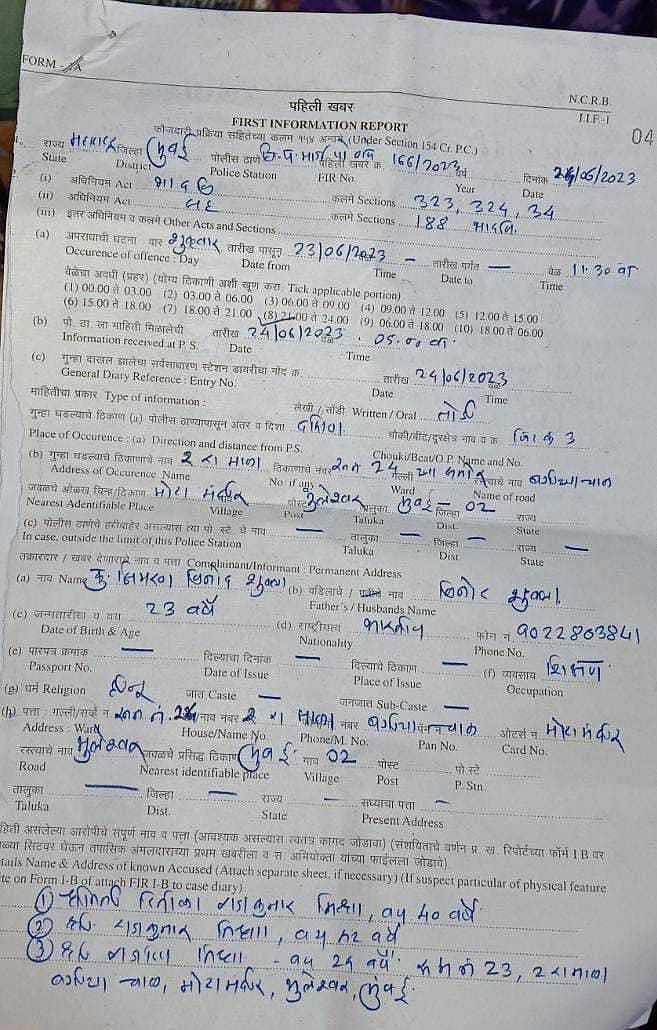 FORM - IA
N.C.R.B.
I.I.F.-I
04
पहिली खबर
FIRST INFORMATION REPORT
फौजदारी प्रक्रिया संहितेच्या कलम १५४ अन्वये (Under Section 154 Cr. P.C.)
राज्य महाराष्ट्र जिल्हा मुंबई पोलीस ठाणे पहिली खबर क्र. 166/2023 वर्ष दिनांक 24/06/2023
State District Police Station FIR No. Year Date
(i) अधिनियम Act भादवि कलमे Sections 323, 324, 34
(ii) अधिनियम Act सह कलमे Sections 188 भादवि.
(iii) इतर अधिनियम व कलमे Other Acts and Sections
(a) अपराधाची घटना वार शुक्रवार तारीख पासून 23/06/2023 – तारीख पर्यंत — वेळ 11.30 वा
Occurence of offence : Day Date from Time Date to Time
वेळेचा अवधी (प्रहर) (योग्य ठिकाणी अशी खूण करा. Tick applicable portion)
(1) 00.00 ते 03.00 (2) 03.00 ते 06.00 (3) 06.00 ते 09.00 (4) 09.00 ते 12.00 (5) 12.00 ते 15.00
(6) 15.00 ते 18.00 (7) 18.00 ते 21.00 (8) 21.00 ते 24.00 (9) 06.00 ते 18.00 (10) 18.00 ते 06.00
(b) पो. ठा. ला माहिती मिळालेची तारीख 24/06/2023 वेळ 05.00 वा.
Information received at P.S. Date Time
(c) गुन्हा दाखल झालेचा सर्वसाधारण स्टेशन डायरीचा नोंद क्र. तारीख 24/06/2023 वेळ
General Diary Reference : Entry No. Date Time
माहितीचा प्रकार Type of information : लेखी / तोंडी Written / Oral तोंडी
गुन्हा घडल्याचे ठिकाण (a) पोलीस ठाण्यापासून अंतर व दिशा दक्षिण चौकी/बीट/दुरक्षेत्र नाव व क्र. बिट क्र 3
Place of Occurence : (a) Direction and distance from P.S. Chouki/Beat/O.P. Name and No.
(b) गुन्हा घडल्याचे ठिकाणाचे नाव 2 रा माळा ठिकाणाचे नं. रूम नं 24 गल्ली रस्त्याचे नाव चाळ
Address of Occurence Name No. if any Ward Name of road
जवळचे ओळख चिन्ह/ठिकाण मोटा मंदीर पोस्ट भुलेश्वर तालुका मुंबई – 02 जिल्हा राज्य
Nearest Adentifiable Place Village Post Taluka Dist. State
(c) पोलीस ठाणेचे हद्दीबाहेर असल्यास त्या पो. स्टे. चे नाव — तालुका — जिल्हा — राज्य —
In case, outside the limit of this Police Station Taluka Dist. State
तक्रारदार / खबर देणाराचे नाव व पत्ता Complainant/Informant : Permanent Address
(a) नाव Name कु. सिमरन विनोद शुक्ला (b) वडिलांचे / पतीचे नाव विनोद शुक्ला
Father's / Husbands Name
(c) जन्मतारीख व वय 23 वर्षे (d) राष्ट्रीयत्व भारतीय फोन नं. 9022803841
Date of Birth & Age Nationality Phone No.
(e) पारपत्र क्रमांक — दिल्याचा दिनांक — दिल्याचे ठिकाण — (f) व्यवसाय शिक्षण
Passport No. Date of Issue Place of Issue Occupation
(g) धर्म Religion हिन्दू जात Caste — जनजात Sub-Caste —
(h) पत्ता : गल्ली/सर्व्हे नं रूम नं. 24 नाव नंबर 2 रा माळा नंबर चाळ ओटर्स नं. मोटा मंदीर
Address : Ward House/Name No. Phone/M. No. Pan No. Card No.
रस्त्याचे नाव भुलेश्वर जवळचे प्रसिद्ध ठिकाण मुंबई गाव 02 पोस्ट पो स्टे
Road Nearest identifiable place Village Post P. Stn
तालुका — जिल्हा — राज्य — सध्याचा पत्ता –
Taluka Dist. State Present Address
हिती असलेल्या आरोपीचे संपूर्ण नाव व पत्ता (आवश्यक असल्यास स्वतंत्र कागद जोडावा) (संशयिताचे वर्णन प्र. ख. रिपोर्टच्या फॉर्म I B वर
tails Name & Address of known Accused (Attach separate sheet, if necessary) (If suspect particular of physical feature
te on Form I-B of attach FIR I-B to case diary)
① श्रीमती राजकुमार मिश्रा, वय 40 वर्षे
② श्री. राजकुमार मिश्रा, वय 42 वर्षे
③ श्री. मिश्रा - वय 24 वर्षे. रूम नं 23, 2 रा माळा
चाळ, मोटा मंदीर, भुलेश्वर, मुंबई.